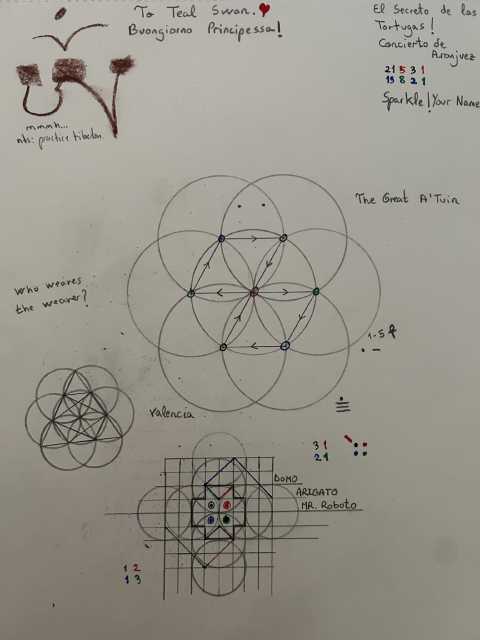 To Teal Swan.
Buongiorno Principessa!
El Secreto de las
Tortugas!
Concierto de
Aranjuez
21 5 3 1
13 8 2 1
Sparkle! Your Name
mmmh...
nts: practice tibetan
The Great A'Tuin
who weares
the wearer?
1-5
valencia
3 1
2 1
DOMO
ARIGATO
MR. Roboto
1 2
1 3